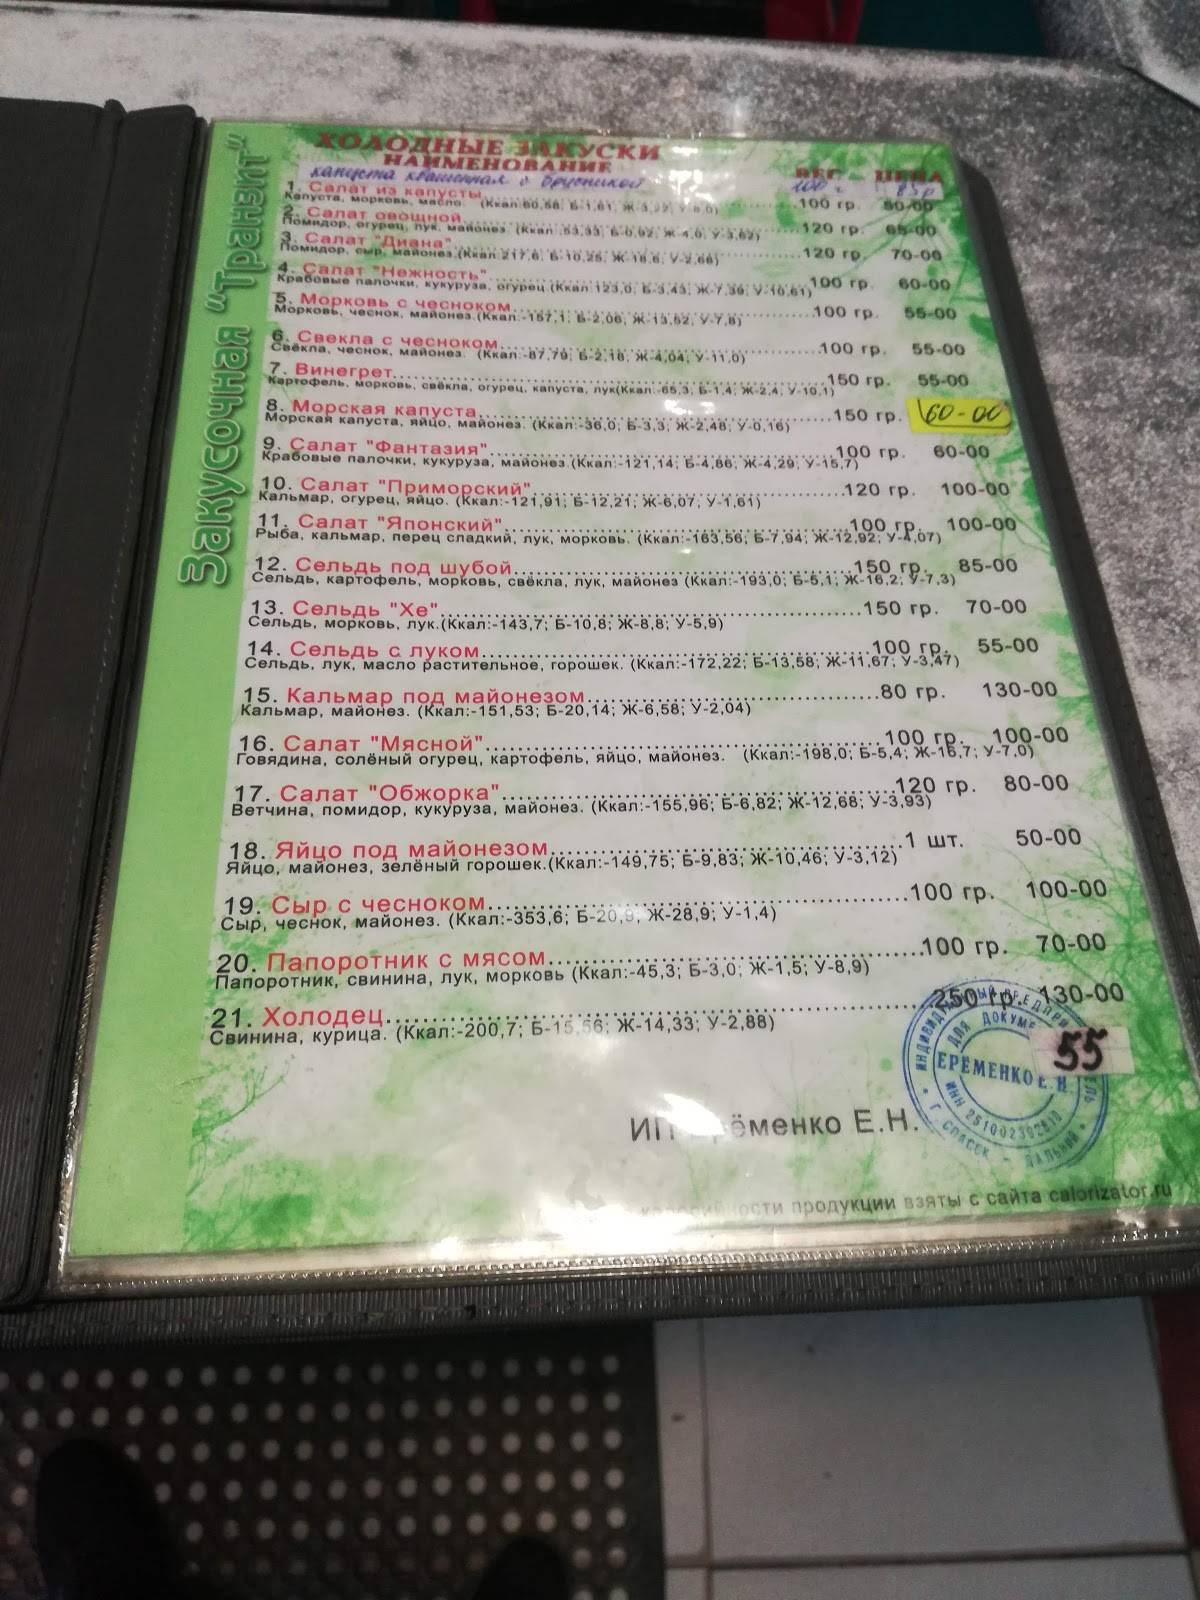 Закусочная "Транзит"
ХОЛОДНЫЕ ЗАКУСКИ
НАИМЕНОВАНИЕ ВЕС ЦЕНА
капуста квашенная с брусникой 100 г 85р
1. Салат из капусты 100 гр. 50-00
Капуста, морковь, масло. (Ккал:60,58; Б-1,61; Ж-3,22;
2. Салат овощной 120 гр. 65-00
Помидор, огурец, лук, майонез. (Ккал:.53,33; Б-0,92; Ж-4,0; У-3,62)
3. Салат "Диана" 120 гр. 70-00
Помидор, сыр, майонез.(Ккал:217,6; Б-10,25; Ж-18,6; У-2,68)
4. Салат "Нежность" 100 гр. 60-00
Крабовые палочки, кукуруза, огурец.(Ккал:123,0; Б-3,43; Ж-7,39; У-10,61)
5. Морковь с чесноком 100 гр. 55-00
Морковь, чеснок, майонез.(Ккал:-157,1; Б-2,06; Ж-13,52; У-7,8)
6. Свекла с чесноком 100 гр. 55-00
Свёкла, чеснок, майонез. (Ккал:-87,79; Б-2,18; Ж-4,04; У-11,0)
7. Винегрет 150 гр. 55-00
Картофель, морковь, свёкла, огурец, капуста, лук(Ккал:-65,3; Б-1,4; Ж-2,4, У-10,1)
8. Морская капуста 150 гр. 60-00
Морская капуста, яйцо, майонез. (Ккал:-36,0; Б-3,3; Ж-2,48; У-0,16)
9. Салат "Фантазия" 100 гр. 60-00
Крабовые палочки, кукуруза, майонез.(Ккал:-121,14; Б-4,86; Ж-4,29; У-15,7)
10. Салат "Приморский" 120 гр. 100-00
Кальмар, огурец, яйцо. (Ккал:-121,91; Б-12,21; Ж-6,07; У-1,61)
11. Салат "Японский" 100 гр. 100-00
Рыба, кальмар, перец сладкий, лук, морковь. (Ккал:-163,56; Б-7,94; Ж-12,92; У-4,07)
12. Сельдь под шубой 150 гр. 85-00
Сельдь, картофель, морковь, свёкла, лук, майонез (Ккал:-193,0; Б-5,1; Ж-16,2; У-7,3)
13. Сельдь "Хе" 150 гр. 70-00
Сельдь, морковь, лук.(Ккал:-143,7; Б-10,8; Ж-8,8; У-5,9)
14. Сельдь с луком 100 гр. 55-00
Сельдь, лук, масло растительное, горошек. (Ккал:-172,22; Б-13,58; Ж-11,67; У-3,47)
15. Кальмар под майонезом 80 гр. 130-00
Кальмар, майонез. (Ккал:-151,53; Б-20,14; Ж-6,58; У-2,04)
16. Салат "Мясной" 100 гр. 100-00
Говядина, солёный огурец, картофель, яйцо, майонез. (Ккал:-198,0; Б-5,4; Ж-16,7; У-7,0)
17. Салат "Обжорка" 120 гр. 80-00
Ветчина, помидор, кукуруза, майонез. (Ккал:-155,96; Б-6,82; Ж-12,68; У-3,93)
18. Яйцо под майонезом 1 шт. 50-00
Яйцо, майонез, зелёный горошек.(Ккал:-149,75; Б-9,83; Ж-10,46; У-3,12)
19. Сыр с чесноком 100 гр. 100-00
Сыр, чеснок, майонез. (Ккал:-353,6; Б-20,9; Ж-28,9; У-1,4)
20. Папоротник с мясом 100 гр. 70-00
Папоротник, свинина, лук, морковь (Ккал:-45,3; Б-3,0; Ж-1,5; У-8,9)
21. Холодец 250 гр. 130-00
Свинина, курица. (Ккал:-200,7; Б-15,56; Ж-14,33; У-2,88)
55
ИНДИВИДУАЛЬНЫЙ
ДЛЯ
ЕРЁМЕНКО Е.Н.
ИНН
Г. СПАССК - ДАЛЬНИЙ
ИП Ерёменко Е.Н.
калорийности продукции взяты с сайта calorizator.ru